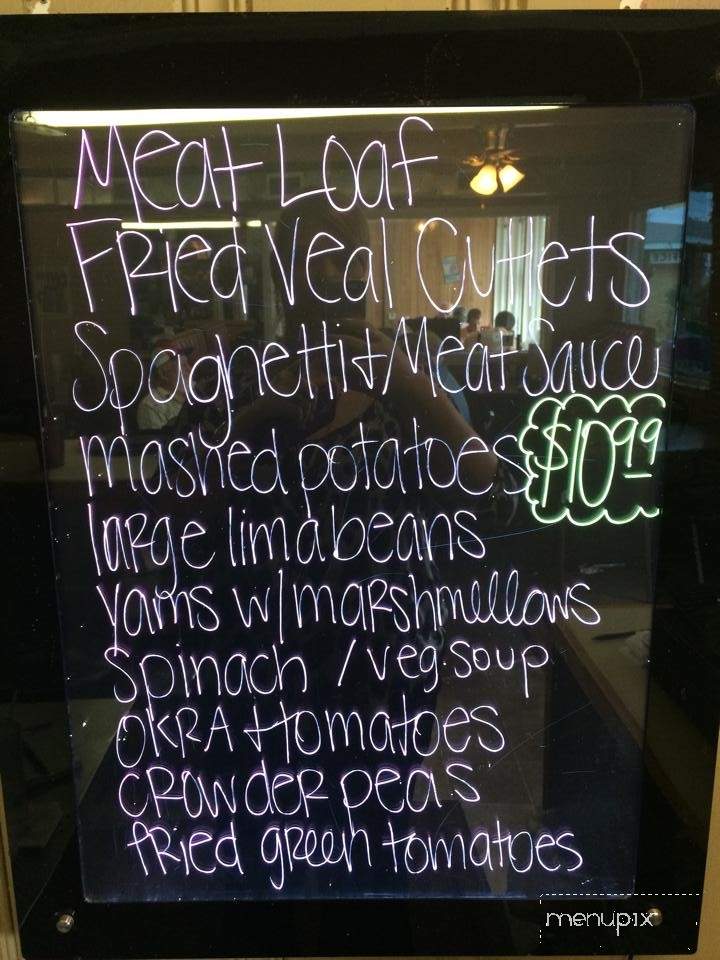 Meat Loaf
Fried Veal Cutlets
Spaghetti & Meat Sauce
mashed potatoes $10.99
large limabeans
yams w/marshmellows
Spinach / veg. soup
OKRA + tomatoes
crowder peas
fried green tomatoes
menupix